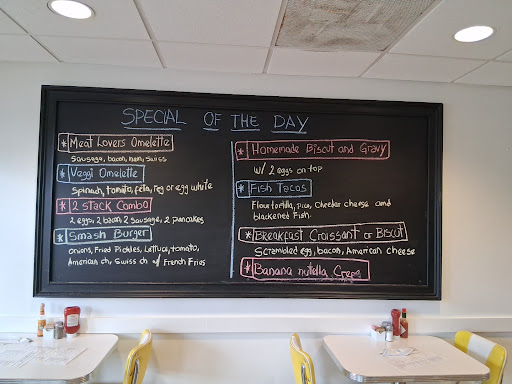 SPECIAL OF THE DAY
* Meat Lovers Omelette
Sausage, bacon, ham, swiss
* Veggi Omelette
Spinach, tomato, feta, reg or egg white
* 2 stack Combo
2 eggs, 2 bacon, 2 sausage, 2 pancakes
* Smash Burger
onions, Fried Pickles, Lettuce, tomato,
American ch, Swiss ch w/ French Fries
* Homemade Biscut and Gravy
w/ 2 eggs on top
* Fish Tacos
Flour tortilla, pico, Chedar cheese and
blackened Fish.
* Breakfast Croissant or Biscut
Scrambled egg, bacon, American cheese
* Banana nutella Crepe